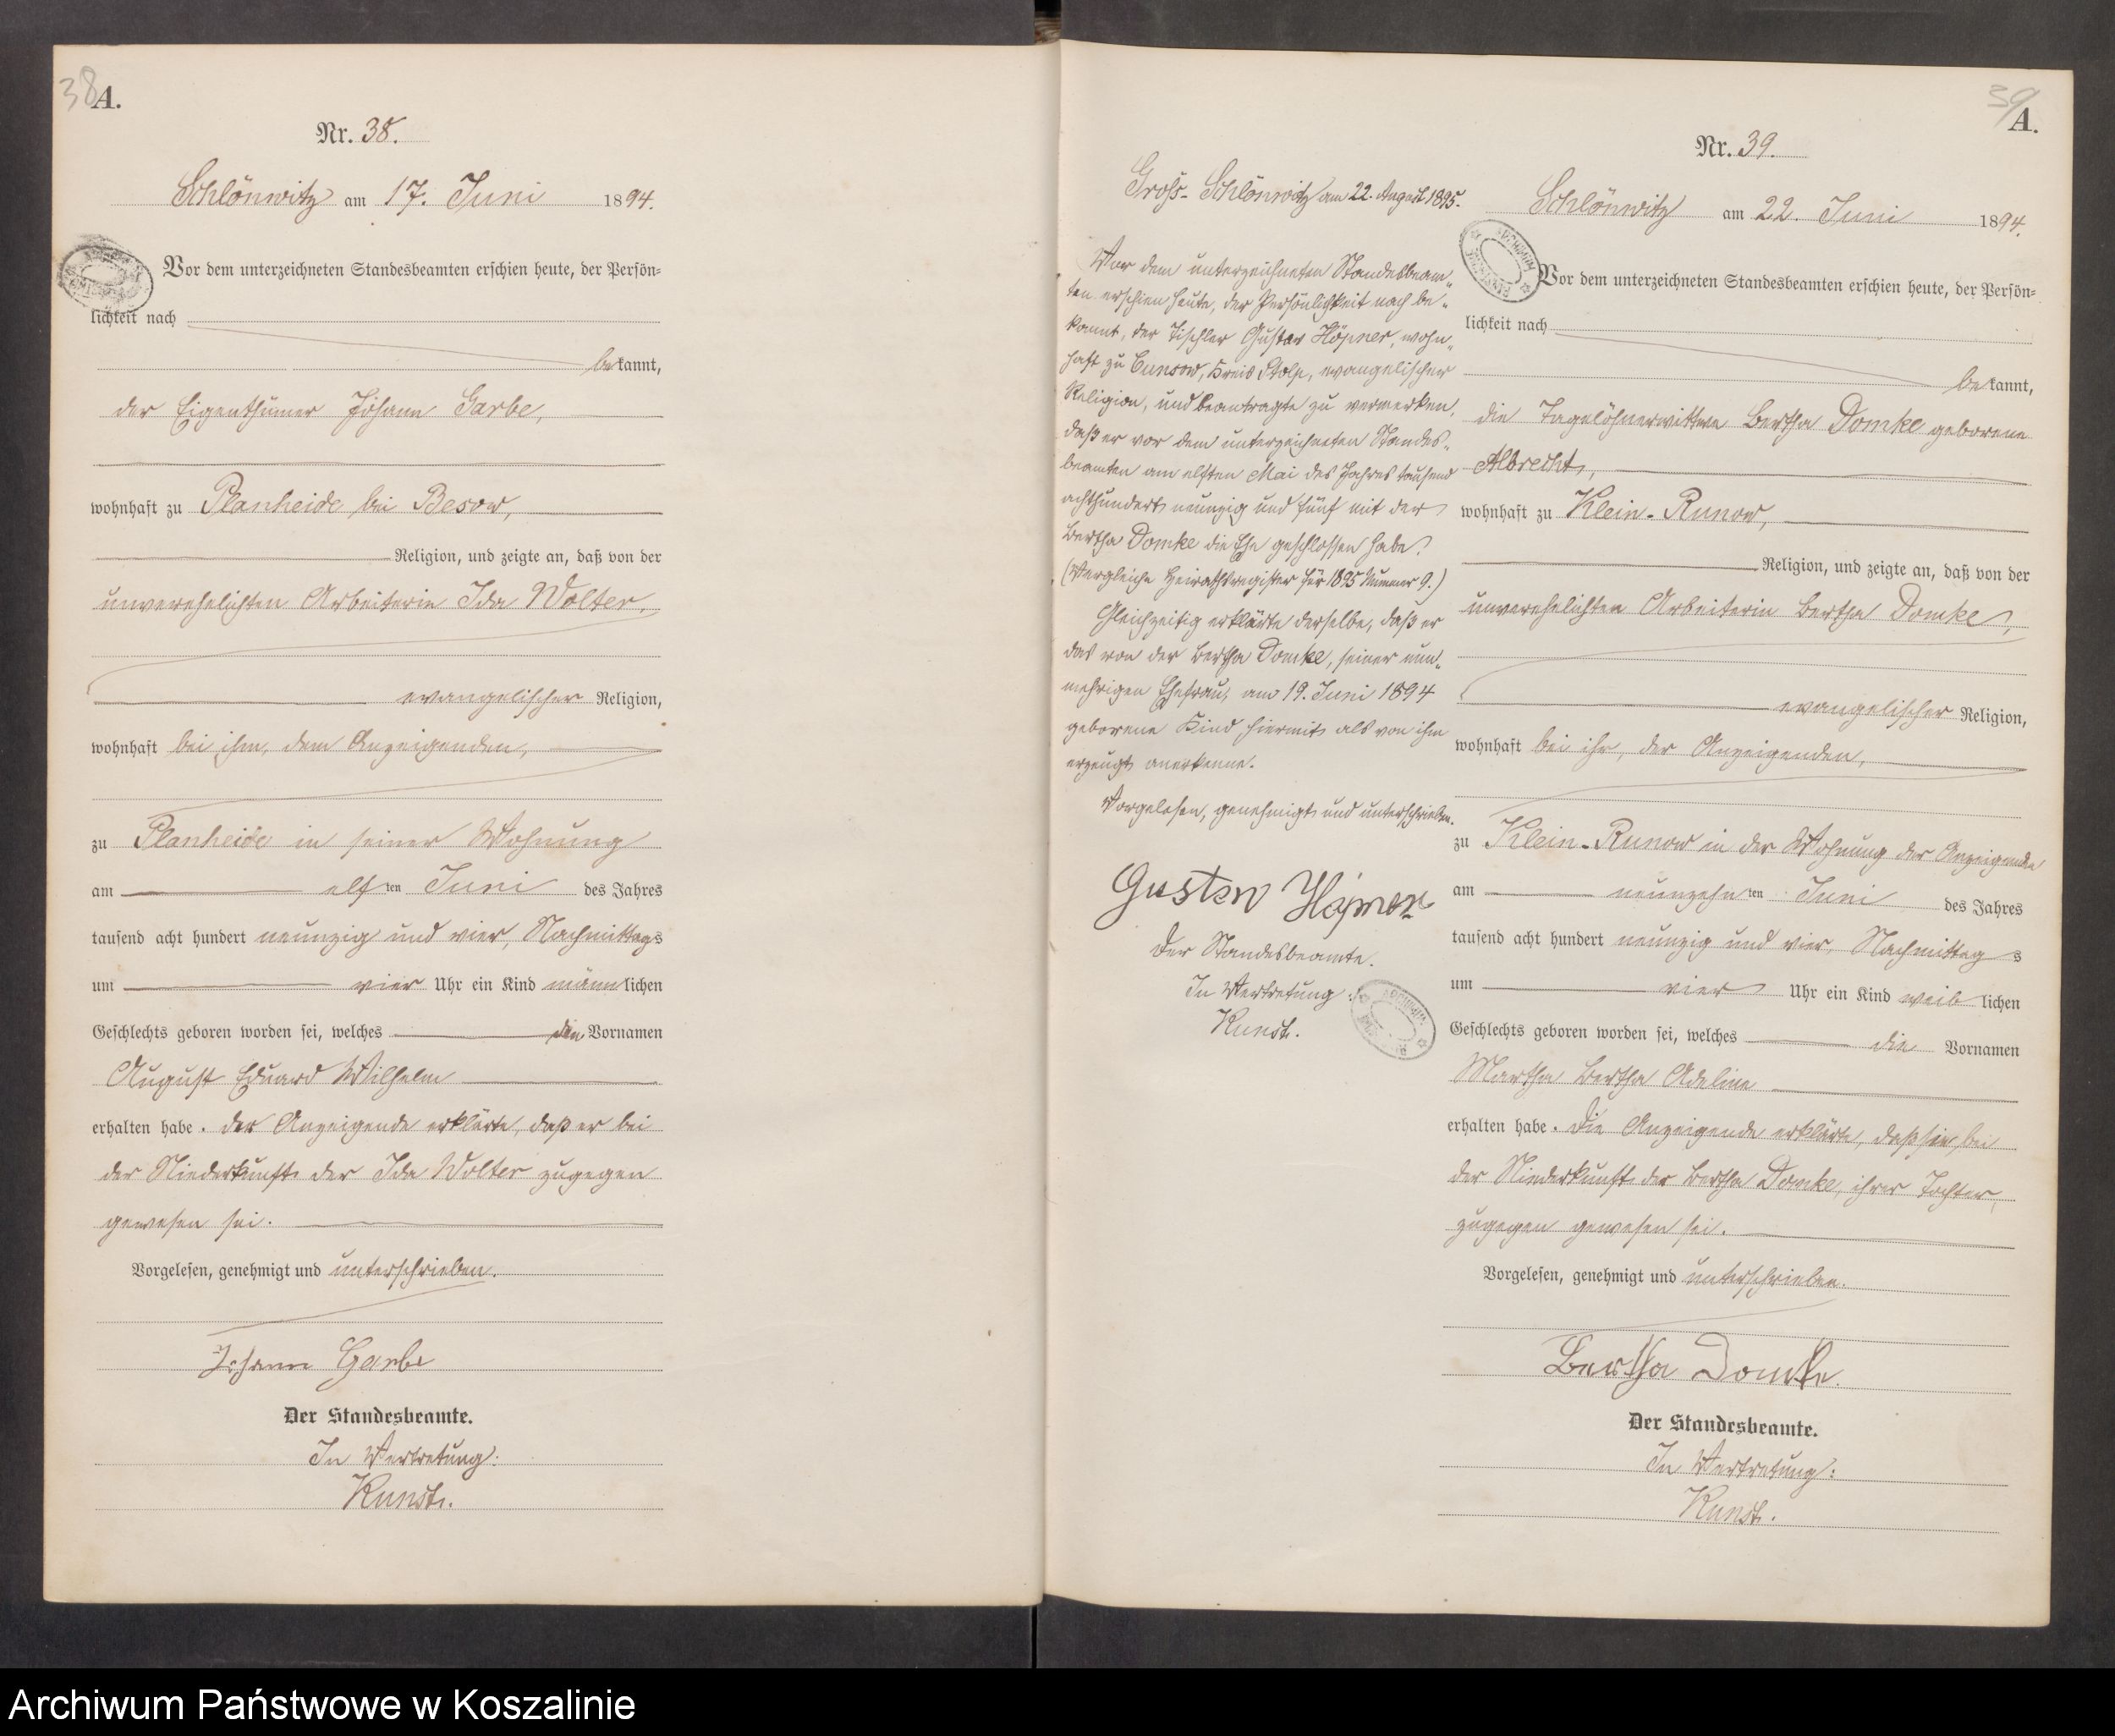 38
A.
Nr. 38.
Schlönwitz am 17. Juni 1894.
Vor dem unterzeichneten Standesbeamten erschien heute, der Persön-
lichkeit nach
bekannt,
der Eigenthümer Johann Garbe,
wohnhaft zu Planheide bei Besow,
Religion, und zeigte an, daß von der
unverehelichten Arbeiterin Ida Wolter,
evangelischer Religion,
wohnhaft bei ihm, dem Anzeigenden,
zu Planheide in seiner Wohnung
am elften Juni des Jahres
tausend acht hundert neunzig und vier, Nachmittags
um vier Uhr ein Kind männlichen
Geschlechts geboren worden sei, welches die Vornamen
August Eduard Wilhelm
erhalten habe. Der Anzeigende erklärte, daß er bei
der Niederkunft der Ida Wolter zugegen
gewesen sei.
Vorgelesen, genehmigt und unterschrieben.
Johann Garbe
Der Standesbeamte.
In Vertretung:
Kunst.
Groß-Schlönwitz am 22. August 1895.
Vor dem unterzeichneten Standesbeam-
ten erschien heute, der Persönlichkeit nach be-
kannt, der Tischler Gustav Höpner, wohn-
haft zu Cunsow, Kreis Stolp, evangelischer
Religion, und beantragte zu vermerken,
daß er vor dem unterzeichneten Standes-
beamten am elften Mai des Jahres tausend
achthundert neunzig und fünf mit der
Bertha Domke die Ehe geschlossen habe.
(Vergleiche Heirathsregister für 1895 Nummer 9.)
Gleichzeitig erklärte derselbe, daß er
das von der Bertha Domke, seiner nun-
mehrigen Ehefrau, am 19. Juni 1894
geborene Kind hiermit als von ihm
erzeugt anerkenne.
Vorgelesen, genehmigt und unterschrieben.
Gustav Höpner
Der Standesbeamte.
In Vertretung:
Kunst.
39
A.
Nr. 39.
Schlönwitz am 22. Juni 1894.
Vor dem unterzeichneten Standesbeamten erschien heute, der Persön-
lichkeit nach
bekannt,
die Tagelöhnerwittwe Bertha Domke geborene
Albrecht,
wohnhaft zu Klein-Runow,
Religion, und zeigte an, daß von der
unverehelichten Arbeiterin Bertha Domke,
evangelischer Religion,
wohnhaft bei ihr, der Anzeigenden,
zu Klein-Runow in der Wohnung der Anzeigenden
am neunzehnten Juni des Jahres
tausend acht hundert neunzig und vier, Nachmittags
um vier Uhr ein Kind weiblichen
Geschlechts geboren worden sei, welches die Vornamen
Martha Bertha Adeline
erhalten habe. Die Anzeigende erklärte, daß sie bei
der Niederkunft der Bertha Domke, ihrer Tochter,
zugegen gewesen sei.
Vorgelesen, genehmigt und unterschrieben.
Bertha Domke.
Der Standesbeamte.
In Vertretung:
Kunst.
Archiwum Państwowe w Koszalinie